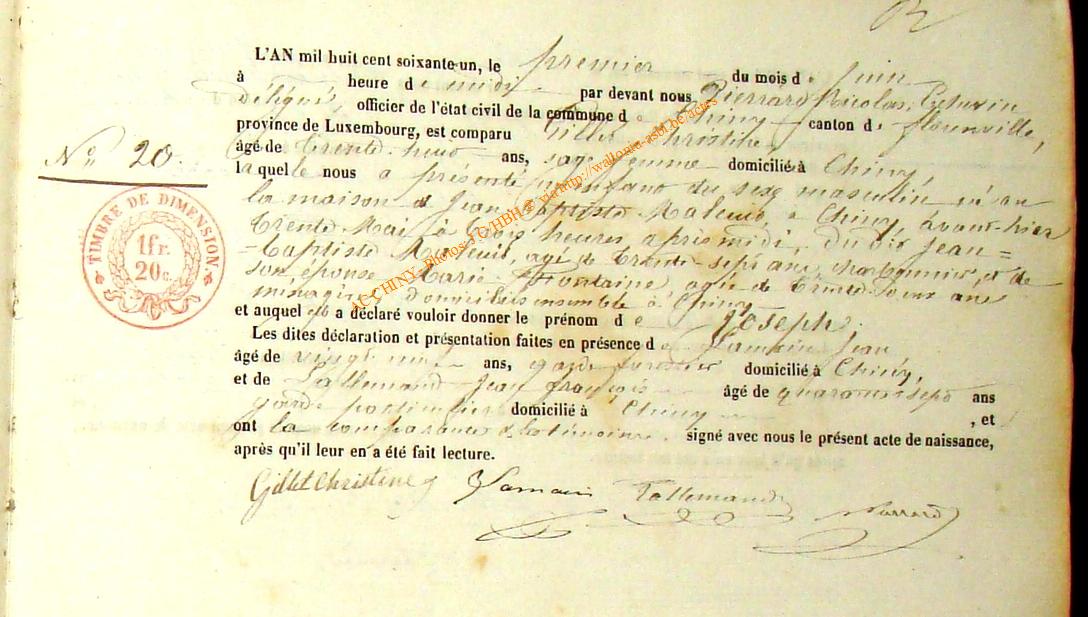 L'AN mil huit cent soixante-un, le premier du mois de Juin
à heure de midi par devant nous Pierrard Nicolas, Echevin
délégué, officier de l'état civil de la commune de Chiny canton de florenville,
province de Luxembourg, est comparu Gillet Christine,
âgé de trente-neuf ans, sage femme domicilié à Chiny,
laquelle nous a présenté un enfant du sexe masculin né en
la maison de Jean Baptiste à Chiny, avant-hier
trente Mai à trois heures après midi, du dit Jean-
-Baptiste agé de trente-sept ans, charbonnier, et de
son épouse Marie Fontaine agée de trente deux ans
ménagère domiciliés ensemble à Chiny
et auquel a déclaré vouloir donner le prénom de Joseph.
Les dites déclaration et présentation faites en présence de Jean
âgé de vingt neuf ans, garde forestier domicilié à Chiny,
et de Lallemand Jean françois âgé de quarante sept ans
garde domicilié à Chiny, et
ont la comparante & les témoins signé avec nous le présent acte de naissance,
après qu'il leur en a été fait lecture.
Gillet Christine Lallemand Pierrard
N° 20.
TIMBRE DE DIMENSION
1 fr.
20 c.
AC CHINY Photos JC/HBH © via http://wallonia-asbl.be/actes